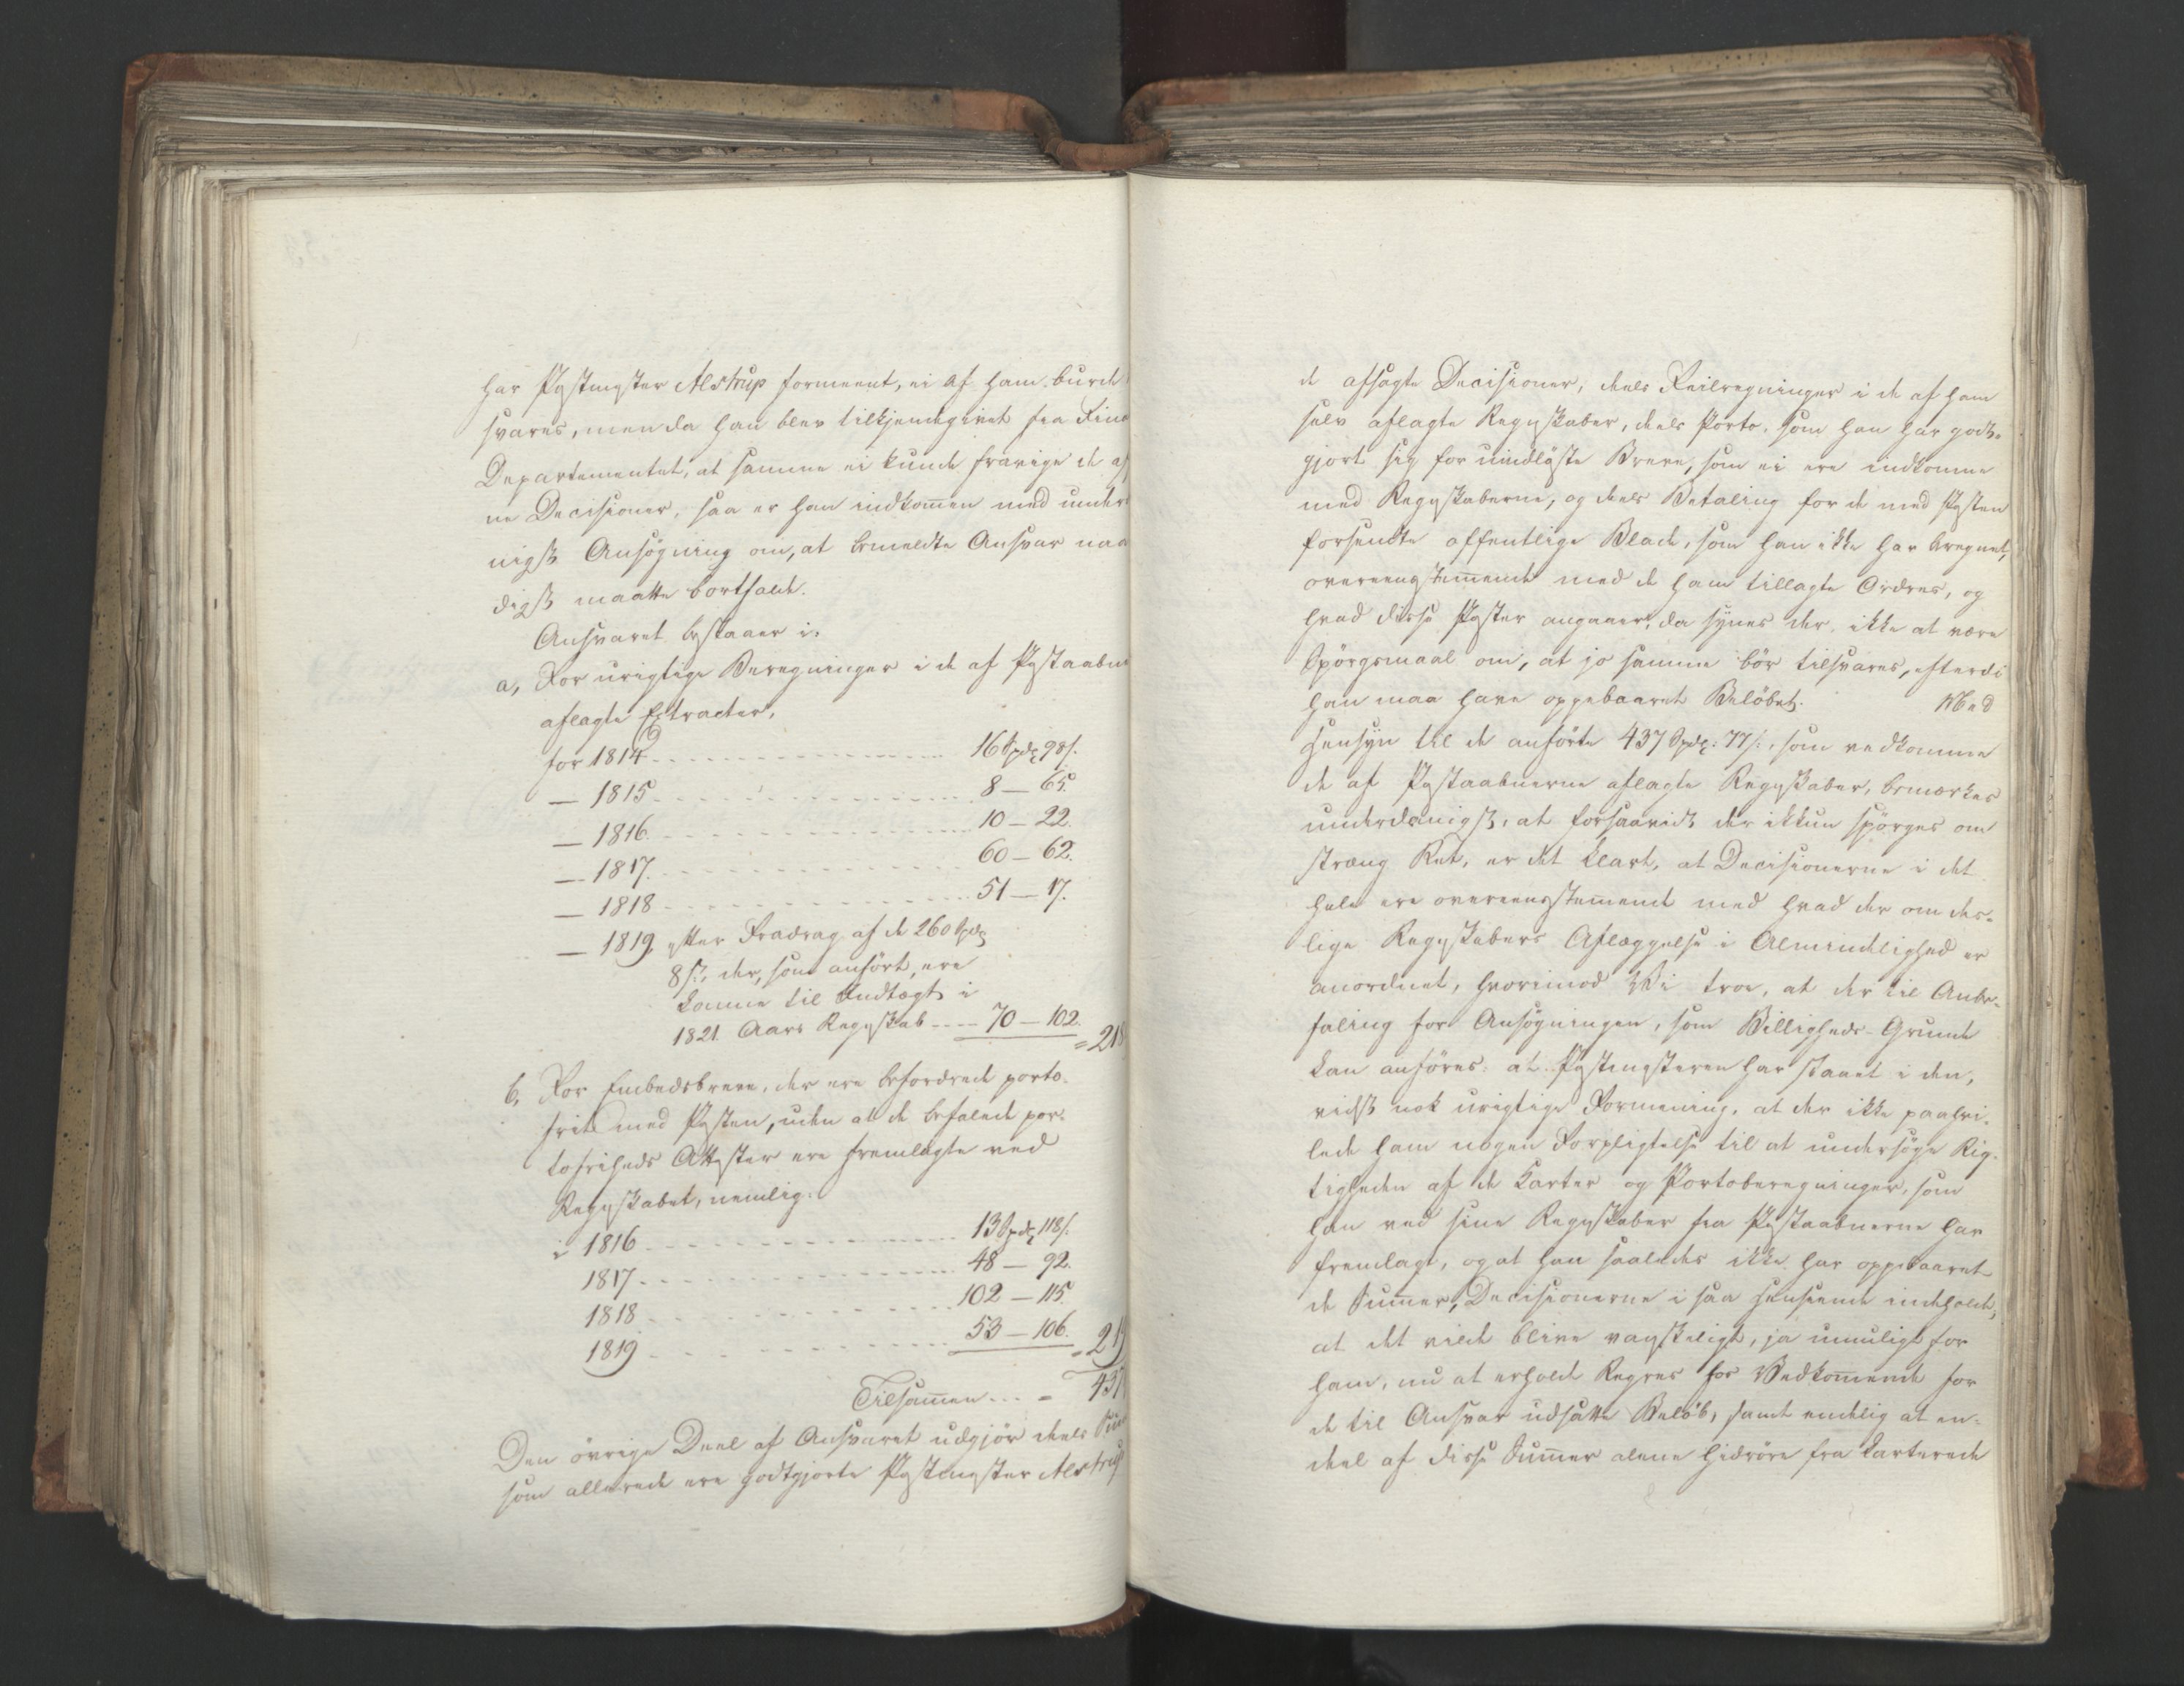 har Postmester Alstrup formeent, ei af ham burde
svares, men da han blev tilkjendegivet fra Fina
Departementet, at samme ei kunde fravige de af
ne Decisioner, saa er han indkommen med under
nigst Ansøgning om, at bemeldte Ansvar naa
digst maatte bortfalde.
Ansvaret bestaaer i:
a, For urigtige Beregninger i de af Postaabn
aflagte Extracter,
for 1814 16 Spdlr 98 s.
— 1815 8 — 65.
— 1816 10 — 22.
— 1817. 60 — 62.
— 1818 51 — 17.
— 1819, efter Fradrag af de 260 Spdlr
8 s., der, som anført, ere
komne til Indtægt i
1821 Aars Regnskab 70 — 102. = 218
b, For Embedsbreve, der ere befordrede porto-
frit med Posten, uden at de befalede por-
tofriheds Attester ere fremlagte ved
Regnskabet, nemlig:
i 1816 13 Spdlr 118 s.
1817 48 — 92.
1818 102 — 115.
1819 53 — 106. = 219
Tilsammen = 437
Den øvrige Deel af Ansvaret udgjør deels
som allerede ere godtgjorte Postmester Alstrup
de afsagte Decisioner, deels Feilregninger i de af ham
selv aflagte Regnskaber, deels Porto, som han har godt-
gjort sig for uindløste Breve, som ei ere indkomne
med Regnskaberne, og deels Betaling for de med Posten
forsendte offentlige Blade, som han ikke har beregnet,
overeensstemmende med de ham tillagte Ordres, og
hvad disse Poster angaaer, da synes der ikke at være
Spørgsmaal om, at jo samme bør tilsvares, efterdi
han maa have oppebaaret Beløbet. Med
Hensyn til de anførte 437 Spdlr: 77 s:, som vedkomme
de af Postaabnerne aflagte Regnskaber, bemærkes
underdanigst, at forsaavidt der ikkun spørges om
stræng Ret, er det klart, at Decisionerne i det
hele ere overeensstemmende med hvad der om des-
lige Regnskabers Aflæggelse i Almindelighed er
anordnet, hvorimod Vi troe, at der til Anbe-
faling for Ansøgningen, som Billigheds-Grunde
kan anføres: at Postmesteren har staaet i den,
vidst nok urigtige Formening, at der ikke paahvi-
lede ham nogen Forpligtelse til at undersøge Rig-
tigheden af de Karter og Portoberegninger, som
han ved sine Regnskaber fra Postaabnerne har
fremlagt, og at han saaledes ikke har oppebaaret
de Summer, Decisionerne i saa Henseende indeholde,
at det vilde blive vanskeligt, ja umuligt for
ham, nu at erholde Regres hos Vedkommende for
de til Ansvar udsatte Beløb, samt endelig at en-
deel af disse Summer alene hidrøre fra karterede